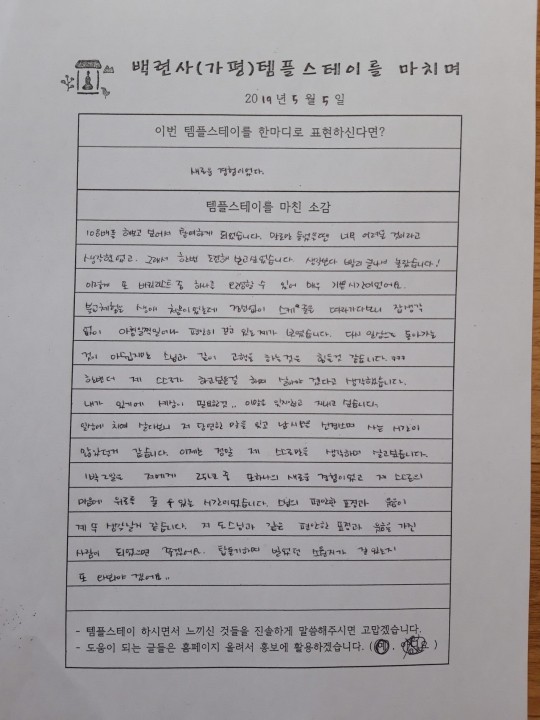 백련사(가평)템플스테이를 마치며
2019년 5월 5일
이번 템플스테이를 한마디로 표현하신다면?
새로운 경험이었다.
템플스테이를 마친 소감
108배를 해보고 싶어서 참여하게 되었습니다. 말로만 들었을땐 너무 어려울 것이라고
생각했었고. 그래서 한번 도전해 보고싶었습니다. 생각보다 빨리 끝나서 놀랐습니다!
이렇게 또 버킷리스트 중 하나를 할 수 있어 매우 기쁜시간이었어요.
불교체험은 생에 처음이었는데 스케줄을 따라가다보니 잡생각
없이 아침일찍일어나 편안히 걷고 있는 제가 보였습니다. 다시 일상으로 돌아가는
것이 스님과 같이 하는것은 힘들것 같습니다. ㅠㅠㅠ
제 스스로가 하고싶은걸 하며 살아야 겠다고 생각했습니다.
내가 있기에 세상이 필요한것.. 이말을 잊지않고 지내고 싶습니다.
일상에 치여 살다보니 저 당연한 말을 잊고 남 시선만 신경쓰며 사는 시간이
많았던거 같습니다. 이제는 정말 제 스스로만을 생각하며 살고싶습니다.
1박 2일은 저에게 25년 중 또하나의 새로운 경험이었고 제 스스로의
마음에 위로를 줄 수 있는 시간이었습니다. 스님의 편안한 표정과 웃음이
계속 생각날거 같습니다. 저도 스님과 같은 편안한 표정과 웃음을 가진
사람이 되었으면 좋겠어요. 탑돌기하며 빌었던 소원지가 잘 있는지
또 와봐야 겠어요..
- 템플스테이 하시면서 느끼신 것들을 진솔하게 말씀해주시면 고맙겠습니다.
- 도움이 되는 글들은 홈페이지 올려서 홍보에 활용하겠습니다. (예,